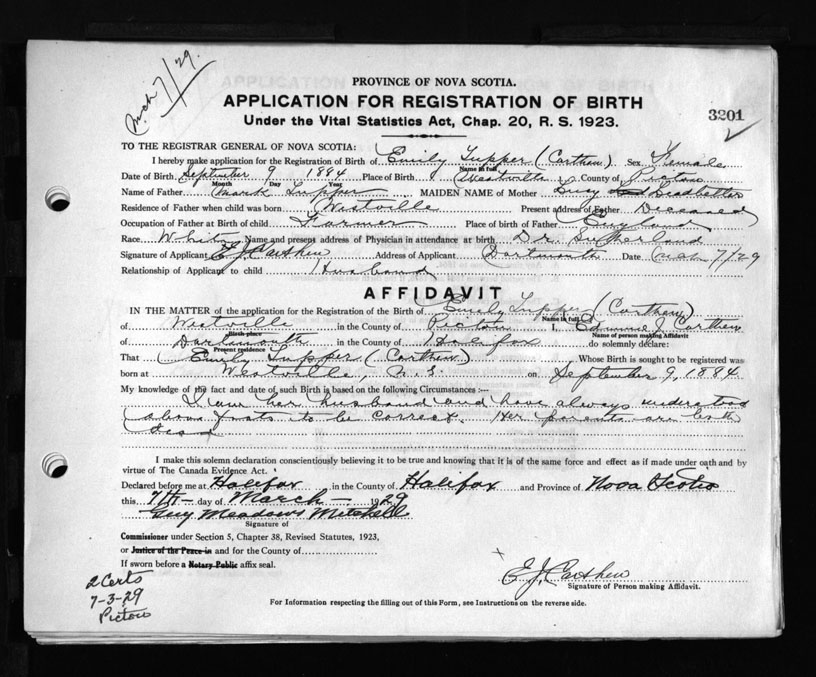 Mch 7/29.
PROVINCE OF NOVA SCOTIA.
APPLICATION FOR REGISTRATION OF BIRTH
3201
Under the Vital Statistics Act, Chap. 20, R. S. 1923.
TO THE REGISTRAR GENERAL OF NOVA SCOTIA:
I hereby make application for the Registration of Birth of Emily Tupper (Carthew) Sex Female
Name in full
Date of Birth September 9 1884 Place of Birth Westville County of Pictou
Month Day Year
Name of Father Mark Tupper MAIDEN NAME of Mother Lucy Leadbetter
Residence of Father when child was born Westville Present address of Father Deceased
Occupation of Father at Birth of child Farmer Place of birth of Father England
Race White Name and present address of Physician in attendance at birth Dr. Sutherland
Signature of Applicant E J Carthew Address of Applicant Dartmouth Date Mch 7/29
Relationship of Applicant to child Husband
AFFIDAVIT
IN THE MATTER of the application for the Registration of the Birth of Emily Tupper (Carthew)
Name in full
of Westville in the County of Pictou I, Edmund J Carthew
Birth place Name of person making Affidavit
of Dartmouth in the County of Halifax do solemnly declare:
Present residence
That (Emily Tupper (Carthew) Whose Birth is sought to be registered was
born at Westville, N.S. on September 9, 1884.
My knowledge of the fact and date of such Birth is based on the following Circumstances :—
I am her husband and have always understood
above facts to be correct. Her parents are both
dead
I make this solemn declaration conscientiously believing it to be true and knowing that it is of the same force and effect as if made under oath and by
virtue of The Canada Evidence Act.
Declared before me at Halifax in the County of Halifax and Province of Nova Scotia
this 7th day of March 1929
Guy Meadows Mitchell
Signature of
Commissioner under Section 5, Chapter 38, Revised Statutes, 1923,
or Justice of the Peace in and for the County of
If sworn before a Notary Public affix seal.
x E J Carthew
Signature of Person making Affidavit.
2 Certs
7-3-29
Pictou
For Information respecting the filling out of this Form, see Instructions on the reverse side.